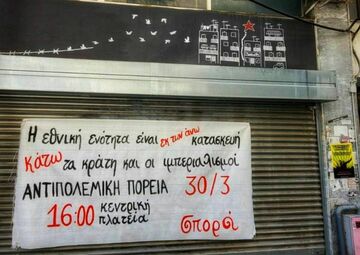 Η εθνική ενότητα είναι εκ των άνω κατασκευή
Κάτω τα κράτη και οι ιμπεριαλισμοί
ΑΝΤΙΠΟΛΕΜΙΚΗ ΠΟΡΕΙΑ 30/3
16:00 κεντρική πλατεία